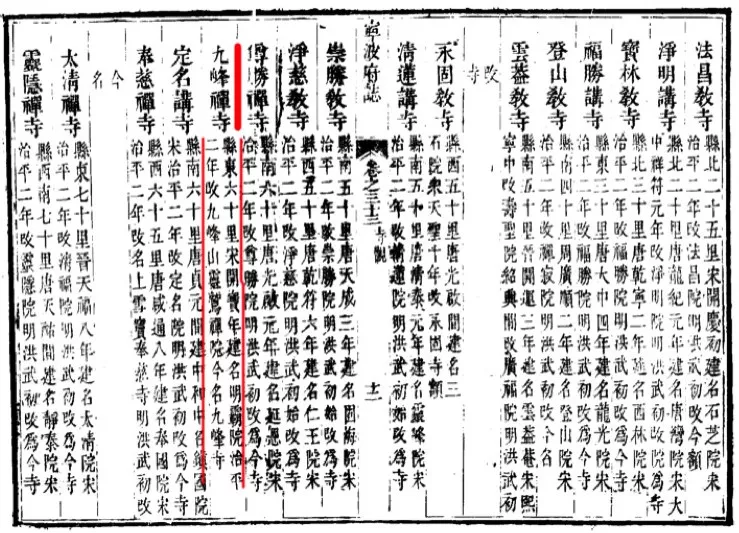 法昌敎寺
縣北二十五里宋開慶初建名石芝院宋
治平二年改法昌院明洪武初改今額
淨明講寺
縣北二十里唐龍紀元年建名唐灣院宋大
中祥符元年改淨明院明洪武初改爲寺
寶林敎寺
縣北三十里唐乾寧二年建名西林院宋
治平二年改寶林院明洪武初改爲今寺
福勝講寺
縣東三十里唐大中四年建名龍光院宋
治平二年改福勝院明洪武初改爲今寺
登山敎寺
縣南四十里周廣順二年建名登山院宋
治平二年改禪寂院明洪武初改今名
雲蓋敎寺
縣南五十里晉開運三年建名雲蓋菴宋熙
寧中改壽聖院紹興間改廣福院明洪武初
改寺
永固敎寺
縣西五十里唐光啟間建名三
石院宋天聖十年改永固寺額
清蓮講寺
縣南五十里唐清泰元年建名靈峰院宋
治平二年改清蓮院明洪武初始改爲寺
寧波府誌
卷之三十三 寺觀
十二
崇勝敎寺
縣南五十里唐天成三年建名固海院宋
治平二年改崇勝院明洪武初改爲今寺
淨慈敎寺
縣西五十里唐乾符六年建名仁王院宋
治平二年改淨慈院明洪武初始改爲寺
尊勝禪寺
縣南六十里唐光啟元年建名延恩院宋
治平二年改尊勝院明洪武初改爲今寺
九峰禪寺
縣東六十里宋開寶年建名明覇院治平
二年改九峰山靈鷲禪院今名九峰寺
定名講寺
縣南六十里唐貞元間建中和中名鎮國院
宋治平二年改定名院明洪武初改爲今寺
奉慈禪寺
縣西六十五里唐咸通八年建名泰國院宋
治平二年改名上雪竇奉慈寺明洪武初改
今名
太清禪寺
縣東七十里晉天福八年建名太清院宋
治平二年改清福院明洪武初改爲今寺
靈隱禪寺
縣西南七十里唐天祐間建名靜泰院宋
治平二年改靈隱院明洪武初改爲今寺